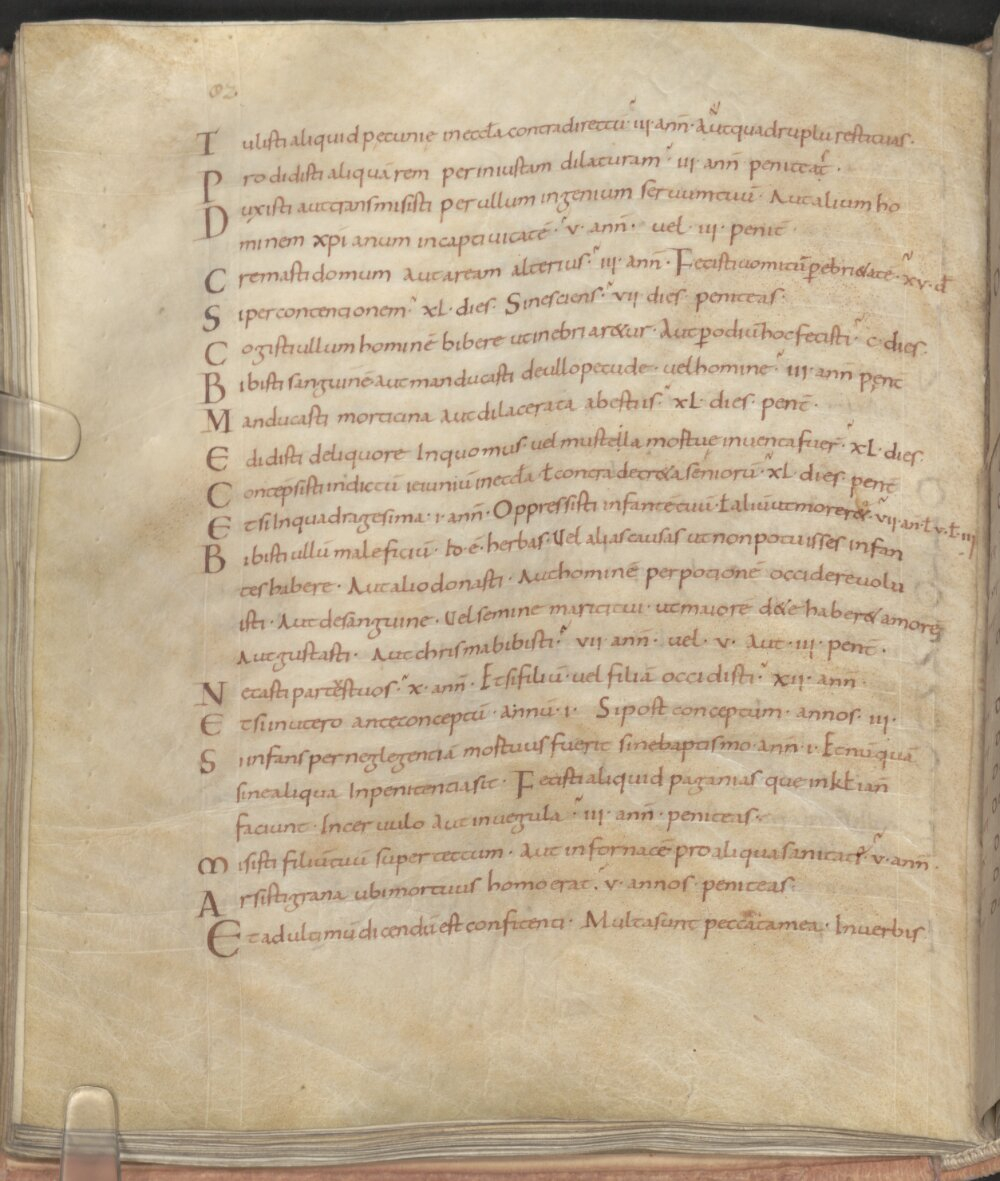 82
Tulisti aliquid pecunie in eccła contra directū · iii · ann̄ · Aut quadruplū restituas ·
Prodidisti aliquā rem per iniustam dilaturam · iii · ann̄ peniteat ·
Duxisti aut transmisisti per ullum ingenium seruum tuū · Aut alium ho
minem xp̄ianum in captiuitatē · v · ann̄ · uel · iii · penit̄ ·
Cremasti domum aut aream alterius · iii · ann̄ · Fecisti uomitū p̄ ebri&atē · xv · d̄
Si per contencionem · xl · dies · Si nesciens · vii dies peniteas ·
Cogisti ullum hominē bibere ut inebriar&ur · Aut p̄ odiū hoc fecisti · c · dies ·
Bibisti sanguinē aut manducasti de ullo pecude · uel homine · iii · ann̄ penit̄
Manducasti morticina aut dilacerata a bestiis · xl · dies · penit̄ ·
Edidisti de liquore In quo mus uel mustella mortue inuenta fuer̄ · xl · dies
Contepsisti indictū ieiuniū in eccła ł contra decr&a seniorū · xl · dies · penit̄
Et si In quadragesima · i · ann̄ · Oppressisti infantē tuū · ł aliū ut morer&ur · vii · an̄ ł · v · ł · iii
Bibisti ullū maleficiū · ho · ē · herbas · Uel alias causas ut non potuisses infan
tes habere · Aut alio donasti · Aut hominē per potionē occidere uolu
isti · Aut de sanguine · Uel semine mariti tui · ut maiorē de te haber& amorē
Aut gustasti · Aut chrisma bibisti · vii · ann̄ · uel · v · Aut · iii · penit̄ ·
Necasti partus tuos · x · ann̄ · Et si filiū · uel filiā occidisti · xii · ann̄
Et si in utero ante conceptū · annū · i · Si post conceptum · annos · iii ·
Si infans per neglegentiā mortuus fuerit sine baptismo · ann̄ · i · Et nū quā
sine aliqua In penitentia sit · Fecisti aliquid paganias que in kł ian̄
faciunt · In ceruulo Aut in uegula · iii · ann̄ · peniteas ·
Misisti filiū tuū super tectum · Aut in fornacē pro aliqua sanitate · v · ann̄ ·
Arsisti grana ubi mortuus homo erat · v · annos · peniteas ·
Et ad ultimū dicendū est confitenti · Multa sunt peccata mea · In uerbis